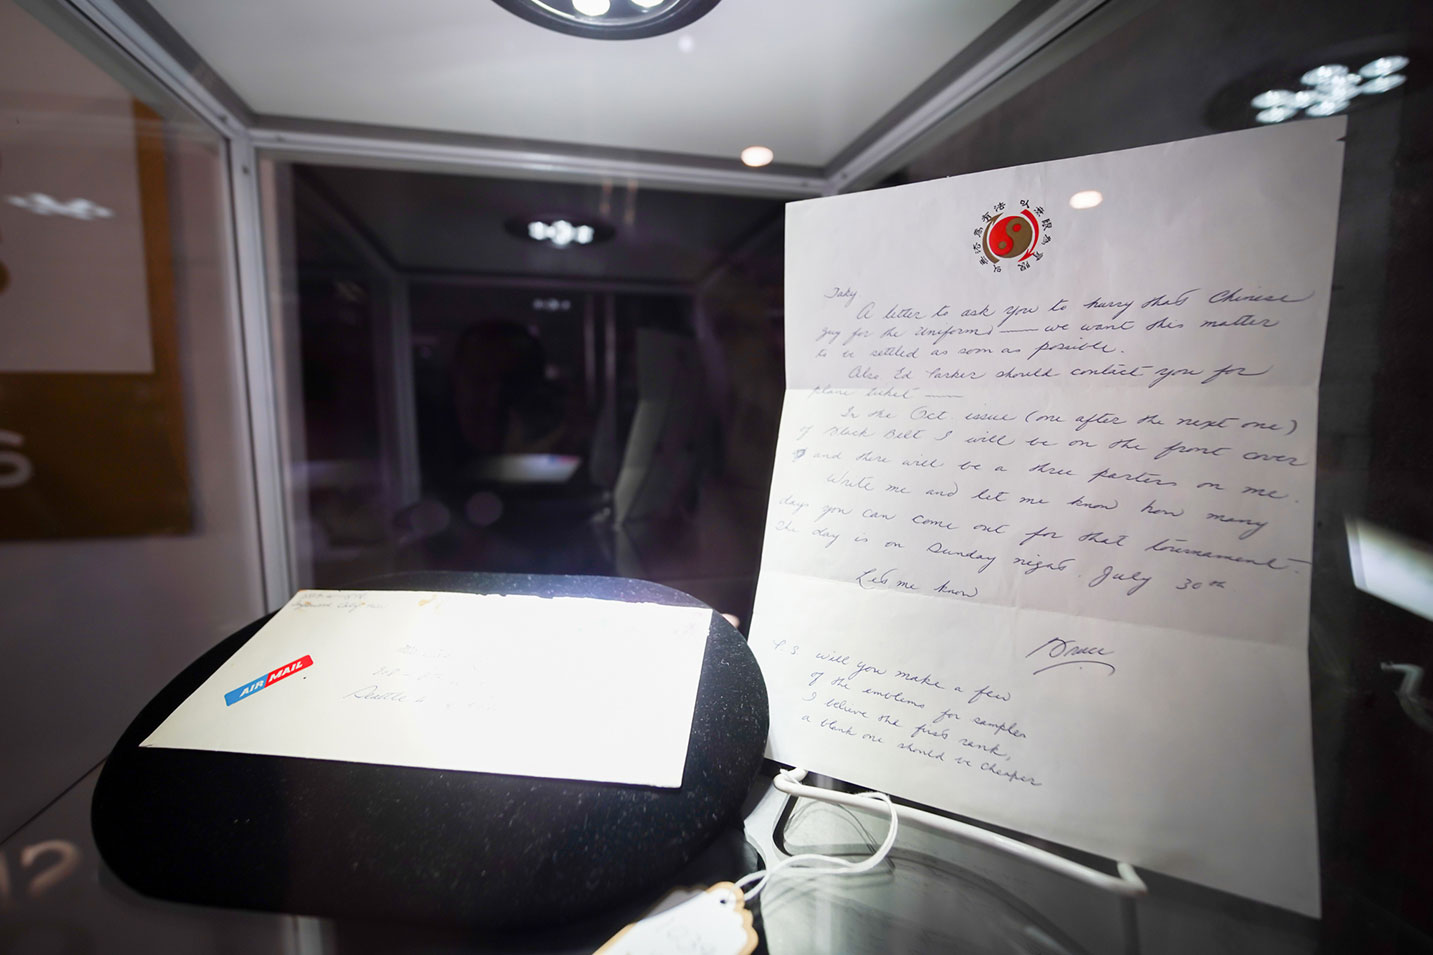 以無限為有限
以無法為有法
Taky.
A letter to ask you to hurry that Chinese
guy for the uniforms — we want this matter
to be settled as soon as possible.
Also Ed Parker should contact you for
plane ticket —
In the Oct. issue (one after the next one)
of Black Belt I will be on the front cover
and there will be a three parter on me.
Write me and let me know how many
days you can come out for that tournament.
The day is on Sunday night. July 30th
Let me know
Bruce
P.S will you make a few
of the emblems for samples
I believe the first rank,
a blank one should be cheaper
AIR MAIL
Seattle
12
S